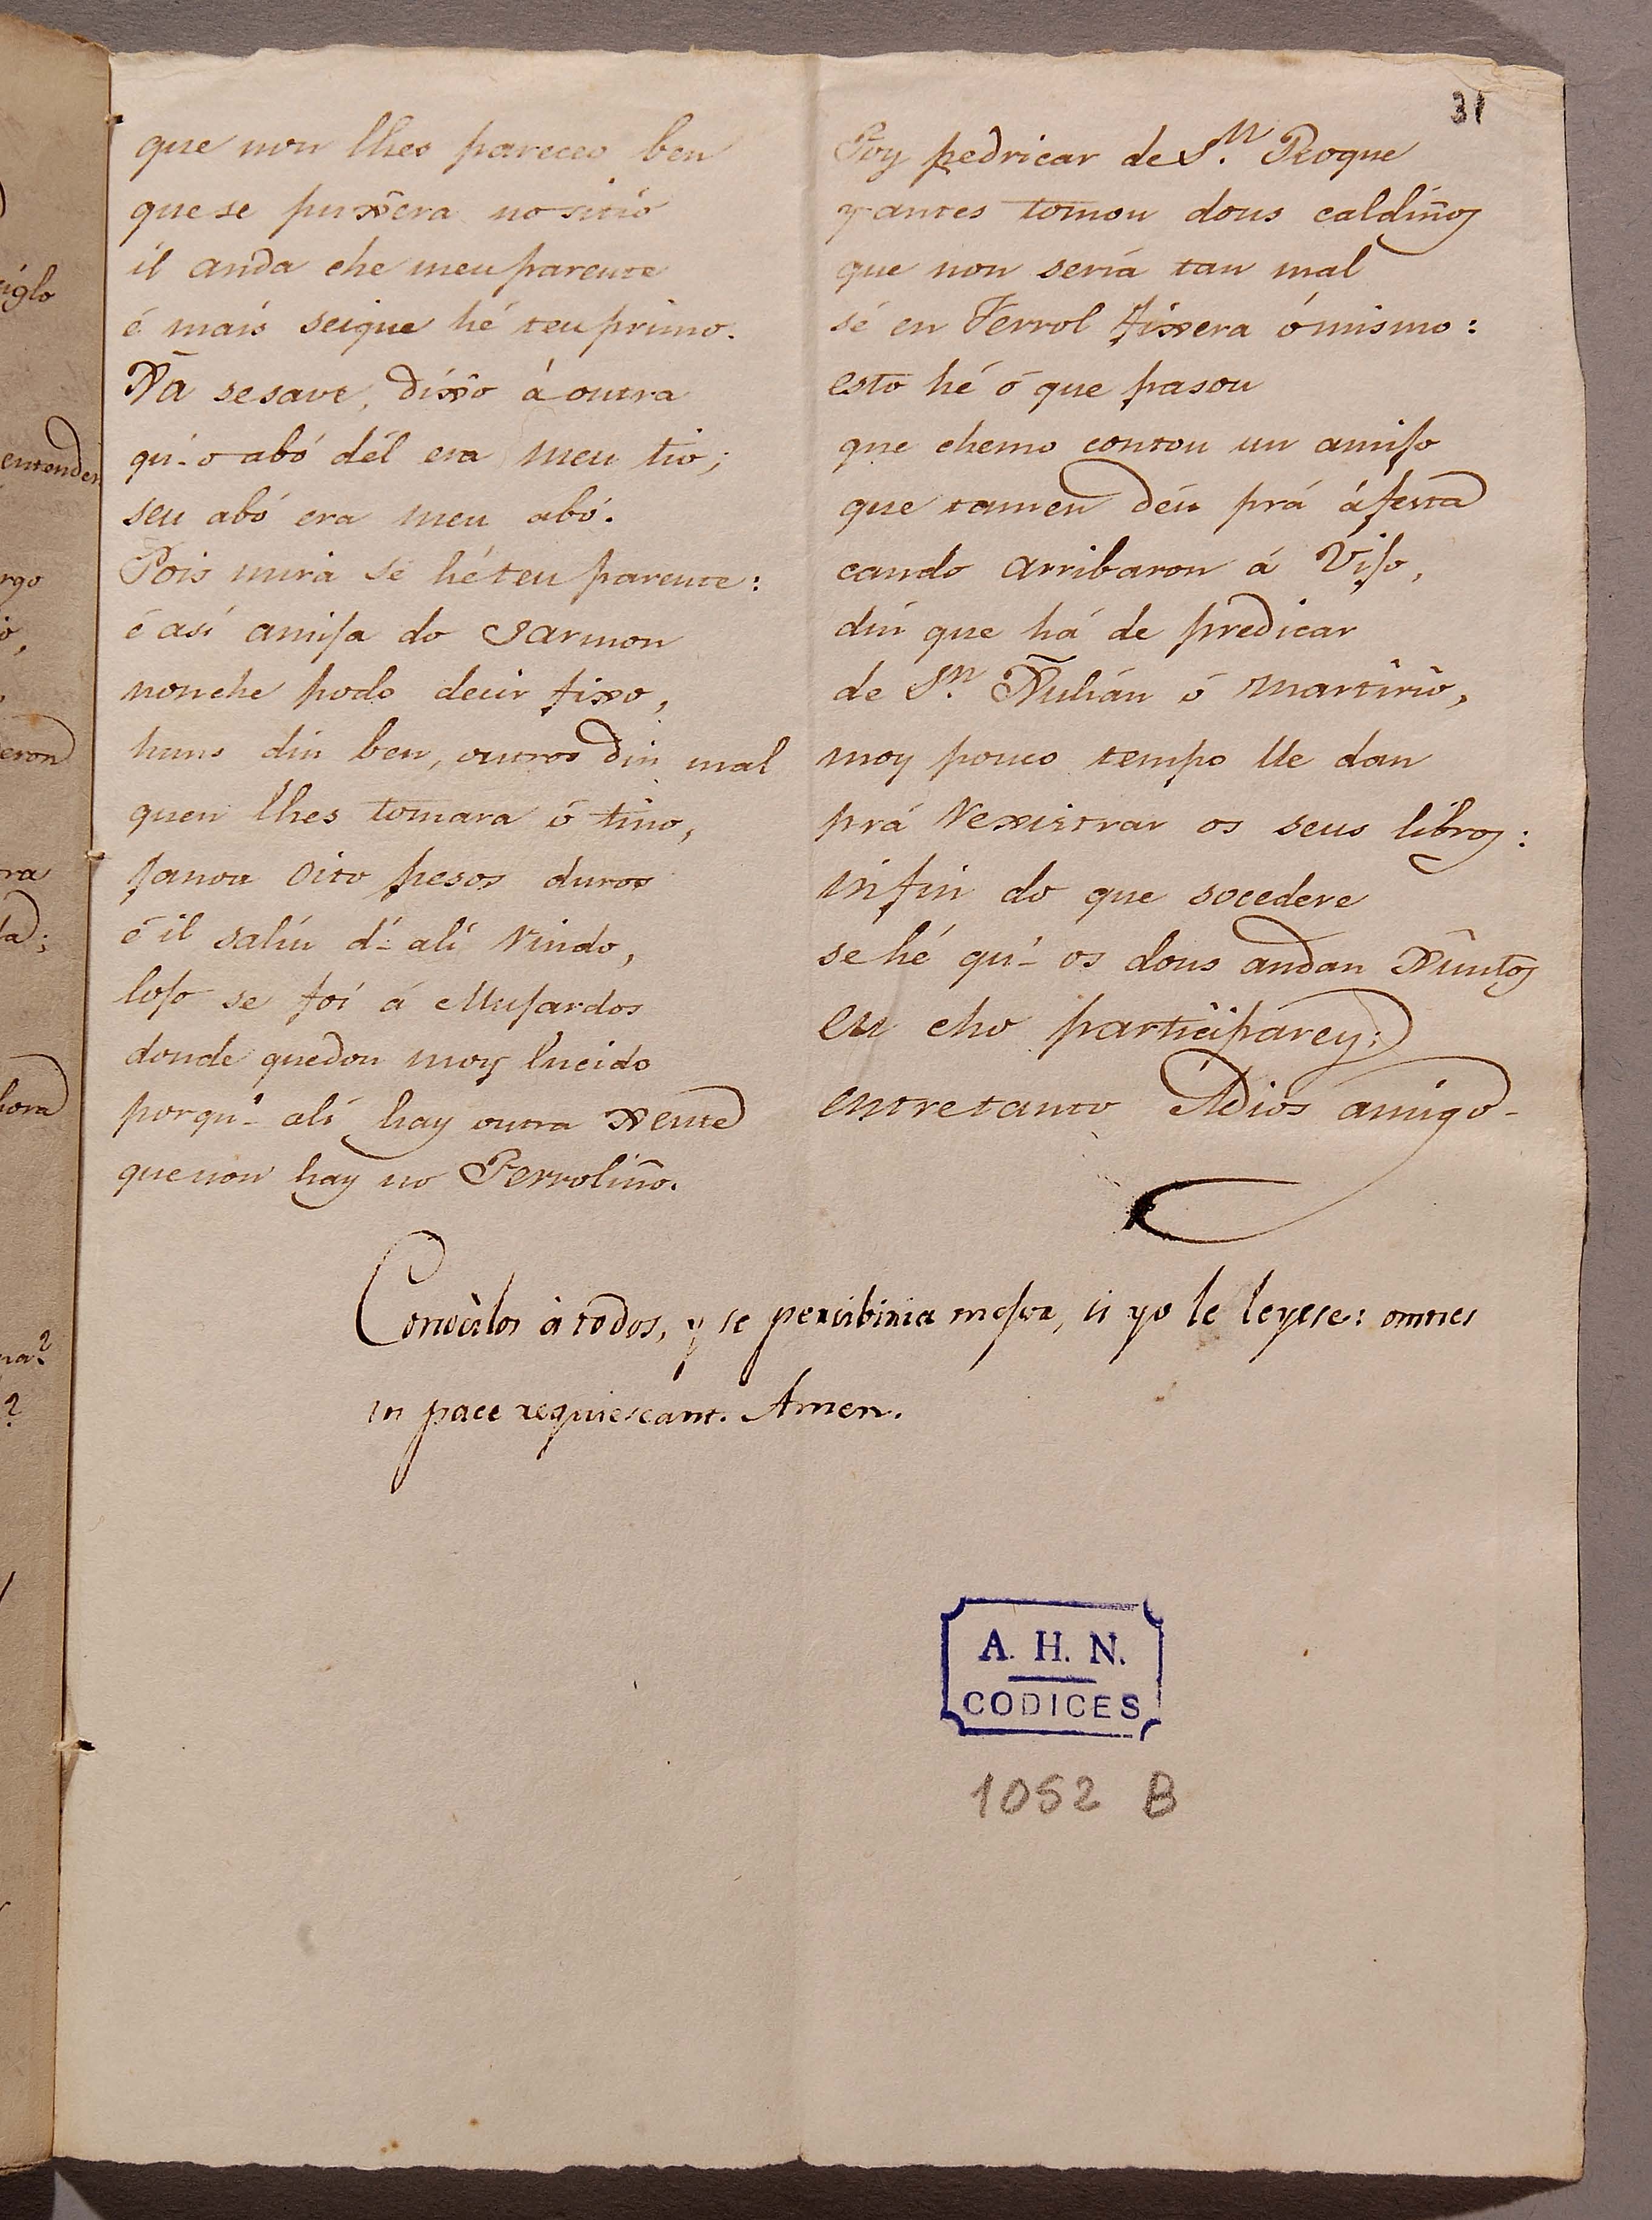 31
que non lhes pareceo ben
que se puxera no sitio
il anda che meu parente
é mais seique hé teu primo.
X̃a se save, dixo á outra
qu'-o abó dél era meu tio;
seu abó era meu abó.
Pois mira se hé teu parente:
é así amiga do Sarmon
non che podo decir fixo,
huns din ben, outros din mal
quen lhes tomara ó tino,
ganou oito pesos duros
é il saliu d'- alí rindo,
logo se foi á Mugardos
donde quedou moy lucido
porqu'- alí hay outra xente
que non hay no Ferroliño.
Foy pedricar de Sn. Roque
y antes tomou dous caldiños
que non sería tan mal
sé en Ferrol fixera ó mismo:
esto hé ó que pasou
que chemo contou un amigo
que tamen déu prá á festa
cando arribaron á Vigo,
din que há de predicar
de Sn. X̃ulián ó martirio,
moy pouco tempo lle dan
prá rexistrar os seus libros:
infin do que socedere
se hé qu'- os dous andan xuntos
eu cho participarey;
entretanto Adios amigo-
Conocilos á todos, y se percibiria mejor, si yo le leyese: omnes
in pace requiescant. Amen.
A. H. N.
CODICES
1052 B
iglo
entender
rgo
o,
eron
ra
la;
hora
na?
?